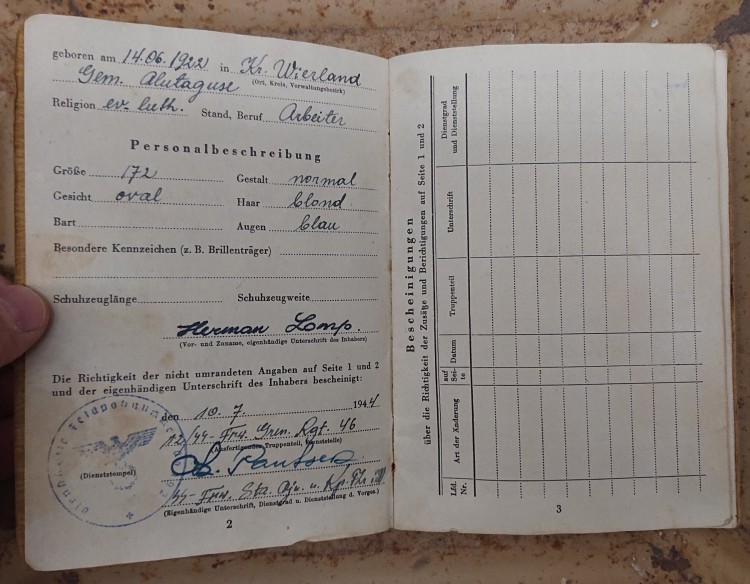 geboren am 14.06.1922 in Kr. Wierland
Gem. Alutaguse (Ort, Kreis, Verwaltungsbezirk)
Religion ev. luth. Stand, Beruf Arbeiter
Personalbeschreibung
Größe 172 Gestalt normal
Gesicht oval Haar blond
Bart Augen blau
Besondere Kennzeichen (z. B. Brillenträger)
Schuhzeuglänge Schuhzeugweite
Herman Lomp.
(Vor- und Zuname, eigenhändige Unterschrift des Inhabers)
Die Richtigkeit der nicht umrandeten Angaben auf Seite 1 und 2
und der eigenhändigen Unterschrift des Inhabers bescheinigt:
den 10.7. 1944
12./SS-Frw. Gren. Rgt. 46
(Ausfertigender Truppenteil, Dienststelle)
(Dienststempel)
SS-Frw. Sta. Oju. u. Kp.
(Eigenhändige Unterschrift, Dienstgrad u. Dienststellung d. Vorges.)
2
Bescheinigungen
über die Richtigkeit der Zusätze und Berichtigungen auf Seite 1 und 2
Lfd. Nr.
Art der Änderung
auf Sei-te
Datum
Truppenteil
Unterschrift
Dienstgrad und Dienststellung
3